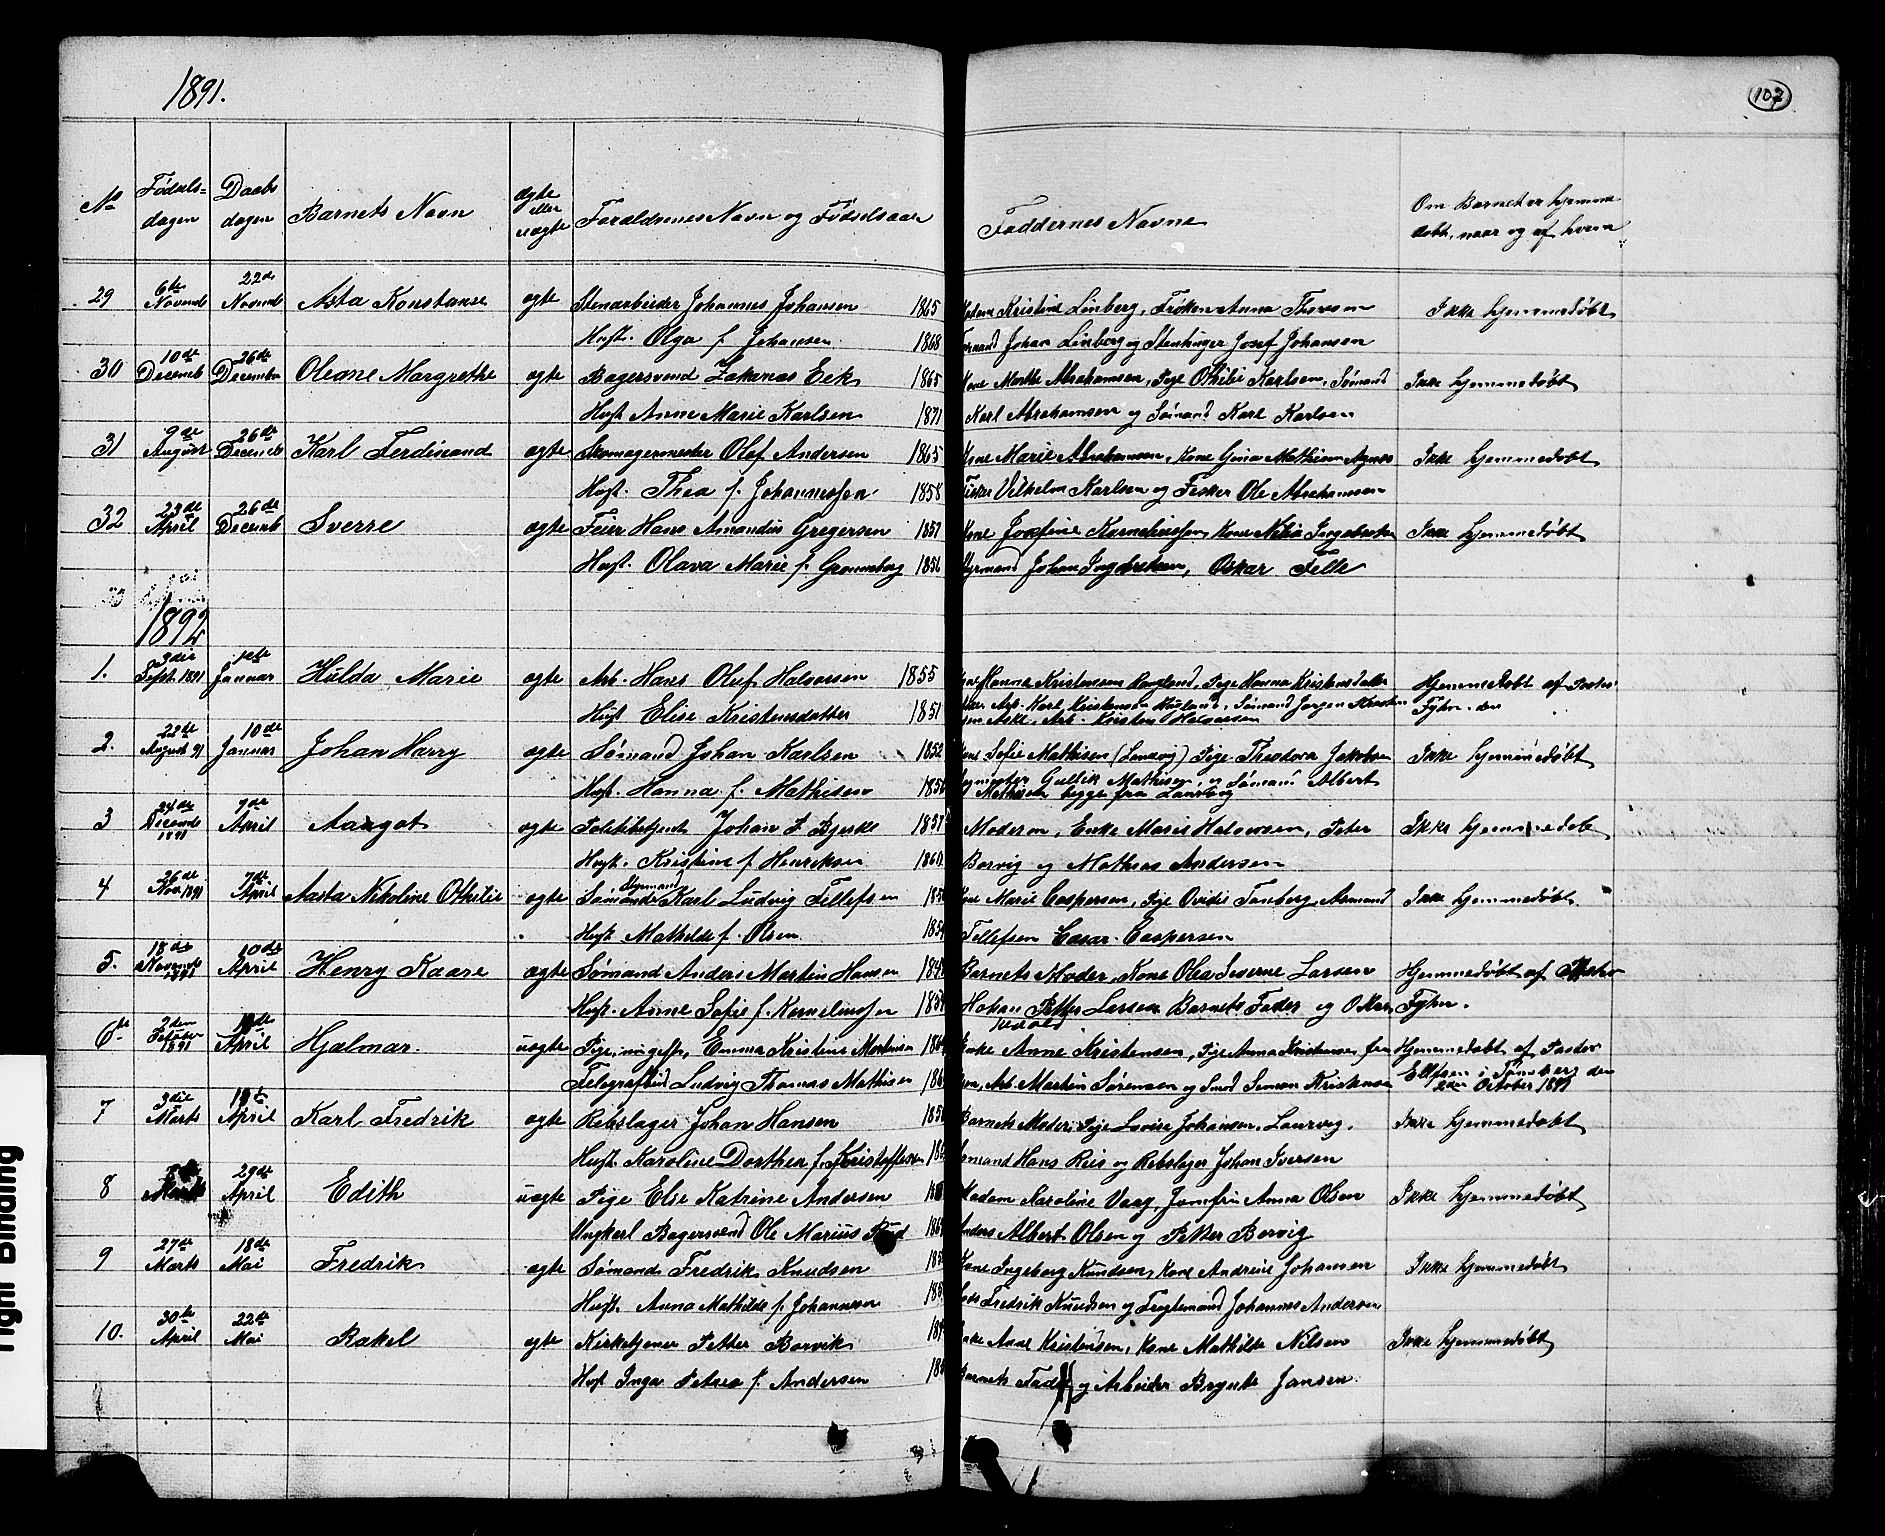 1891.
107
No Fødsels- dagen Daabs dagen Barnets Navn ægte eller uægte Forældrenes Navn og Fødselsaar Faddernes Navne Om Barnet er hjemme døbt, naar og af hvem
29 6te Novemb 22de Novemb Asta Konstanse ægte Stenarbeider Johannes Johansen 1865 Kristine Linberg, Frøken Anna Thoresen Ikke hjemmedøbt
Hust. Olga f. Johansen 1868 Johan Linberg og Stenhuger Josef Johansen
30 10de Decemb 26de Decembr Oleane Margrethe ægte Bagersvend Zakarias Eek 1865 Kone Marthe Abrahamsen, Pige Othilie Karlsen, Sømand Ikke hjemmedøbt
Hust Anne Marie Karlsen 1871 Karl Abrahamsen og Sømand Karl Karlsen
31 9de August 26de Decemb Karl Ferdinand ægte Skomagermester Olaf Andersen 1865 Kone Marie Abrahamsen, Kone Gina Mathea Agnes Ikke hjemmedøbt
Hust. Thea f. Johannessen 1858 Fisker Vilhelm Karlsen og Fisker Ole Abrahamsen
32 23de April 26de Decemb Sverre ægte Feier Hans Amandus Gregersen 1857 Kone Josefine Korneliussen, Kone Ikke hjemmedøbt
Hust. Olava Marie f. Grønneberg 1856 Styrmand Johan Ingebretsen, Oskar Felle
1892
1. 3die Sept. 1891 1ste Januar Hulda Marie ægte Arb. Hans Oluf Halvorsen 1855 Hanna Kristensen Haugland, Pige Hanna Kristensdatter Hjemmedøbt af Pastor
Hust Elise Kristensdatter 1851 Arb. Karl Kristensen, Sømand Jørgen Fyhn. den
Arb. Kristen Halvorsen
2. 22de August 91 10de Januar Johan Harry ægte Sømand Johan Karlsen 1852 Kone Sofie Mathisen (Laurvig) Pige Theodora Jakobsen Ikke hjemmedøbt
Hust. Hanna f. Mathisen Gullik Mathisen og Sømand Albert
Mathisen begge fra Laurvig
3 24de Decemb 1891 9de April Aagot ægte Politibetjent Johan P Bjerke 1857 Moderen, Enke Marie Halvorsen, Peter Ikke hjemmedøb
Hust. Kristine f. Henriksen Borvig og Mathias Andersen
4 26de Nov 1891 7de April Aasta Nikoline Othilie ægte Styrmand Sømand Karl Ludvig Tellefsen Kone Marie Caspersen, Pige Ovidie Tonsberg, Armand Ikke hjemmedøbt
Hust Mathilde f. Olsen Tellefsen Casar Caspersen
5. 18de Novemb 1891 10de April Henry Kaare ægte Sømand Anders Martin Hansen Barnets Moder, Kone Olea Severine Larsen Hjemmedøbt af Pastor
Hust. Anne Sofie f. Korneliussen Hakon Petter Larsen Barnets Fader og Oskar Fyhn.
6te 1891 April Hjalmar. uægte Pige, Emma Kristine Mortensen Enke Anne Kristensen, Pige Anna Kristensen fra Hjemmedøbt af Pastor
Telegrafbud Ludvig Thomas Mathisen Arb. Martin Sørensen og Smed Simon Kristensen Ellefsen i Tønsberg den
October 1891
7 3die Marts April Karl Fredrik ægte Rebslager Johan Hansen Barnets Moder, Pige Lovise Johansen, Laurvig. Ikke hjemmedøbt
Hust. Karoline Dorthea f. Kristoffersen Hans Reis og Rebslager Johan Iversen
8 Marts 29de April Edith uægte Pige Else Katrine Andersen Madam Karoline Vaag, Jomfru Anna Olsen Ikke hjemmedøbt
Ungkarl Bagersvend Ole Marius Rud Anders Albert Olsen og Petter Borvig
9 27de Marts 18de Mai Fredrik ægte Sømand Fredrik Knudsen Kone Ingeborg Knudsen, Kone Andrine Johansen Ikke hjemmedøbt
Hust. Anna Mathilde f. Johannesen Fredrik Knudsen og Johannes Andersen
10. 30te April 22de Mai Rakel ægte Kirketjener Petter Borvik Enke Anne Kristensen, Kone Mathilde Nilsen Ikke hjemmedøbt
Hust Inga Petrea f. Andersen Barnets Fader og Arbeider Brynte Jansen
Tight Binding